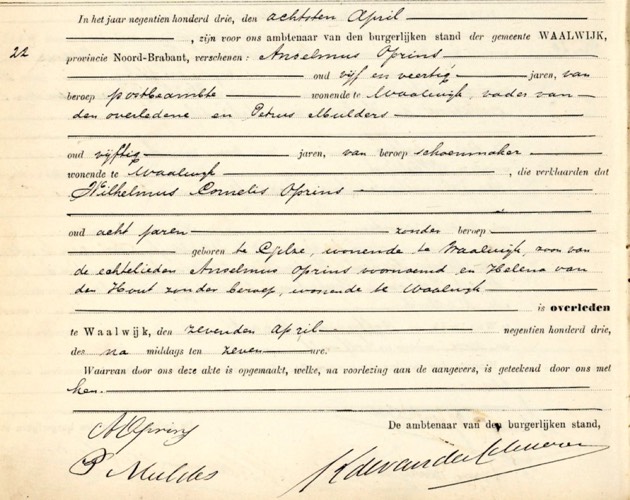 In het jaar negentien honderd drie, den achtsten April
, zijn voor ons ambtenaar van den burgerlijken stand der gemeente WAALWIJK,
22
provincie Noord-Brabant, verschenen: Anselmus Oprins
oud vijf en veertig jaren, van
beroep postbeambte wonende te Waalwijk, vader van
den overledene en Petrus Mulders
oud vijftig jaren, van beroep schoenmaker
wonende te Waalwijk, die verklaarden dat
Wilhelmus Cornelis Oprins
oud acht jaren zonder beroep
geboren te Gilze, wonende te Waalwijk, zoon van
de echtelieden Anselmus Oprins voornoemd en Helena van
den Hout zonder beroep, wonende te Waalwijk
is overleden
te Waalwijk, den zevenden April negentien honderd drie,
des na middags ten zeven ure.
Waarvan door ons deze akte is opgemaakt, welke, na voorlezing aan de aangevers, is geteekend door ons met
hen.
De ambtenaar van den burgerlijken stand,
A Oprins
P Mulders